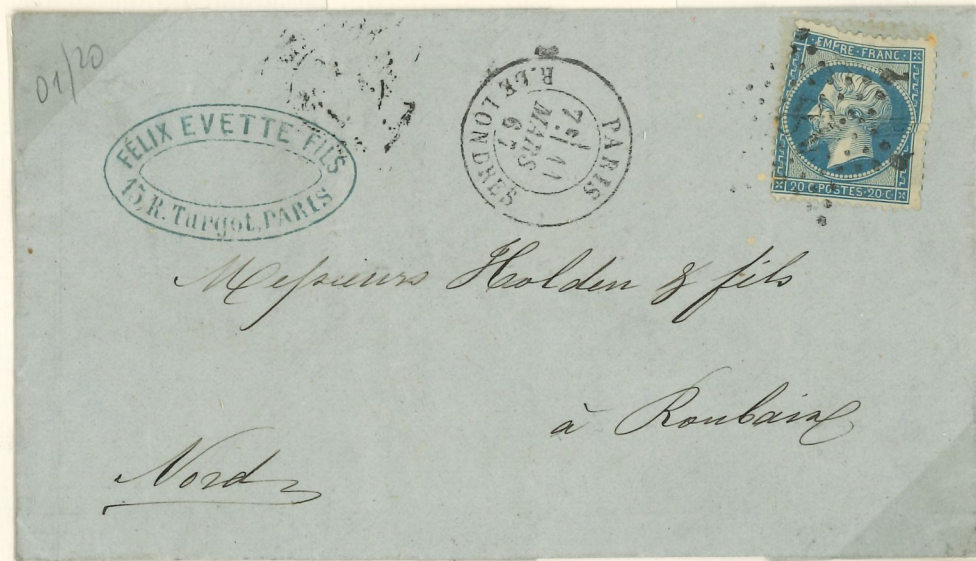 01/20
FÉLIX EVETTE FILS
15, R. Turgot, PARIS
PARIS
R. DE LONDRES
7E
11
MARS
67
EMPRE · FRANC ·
20 C · POSTES · 20 C
Messieurs Holden & fils
à Roubaix
Nord